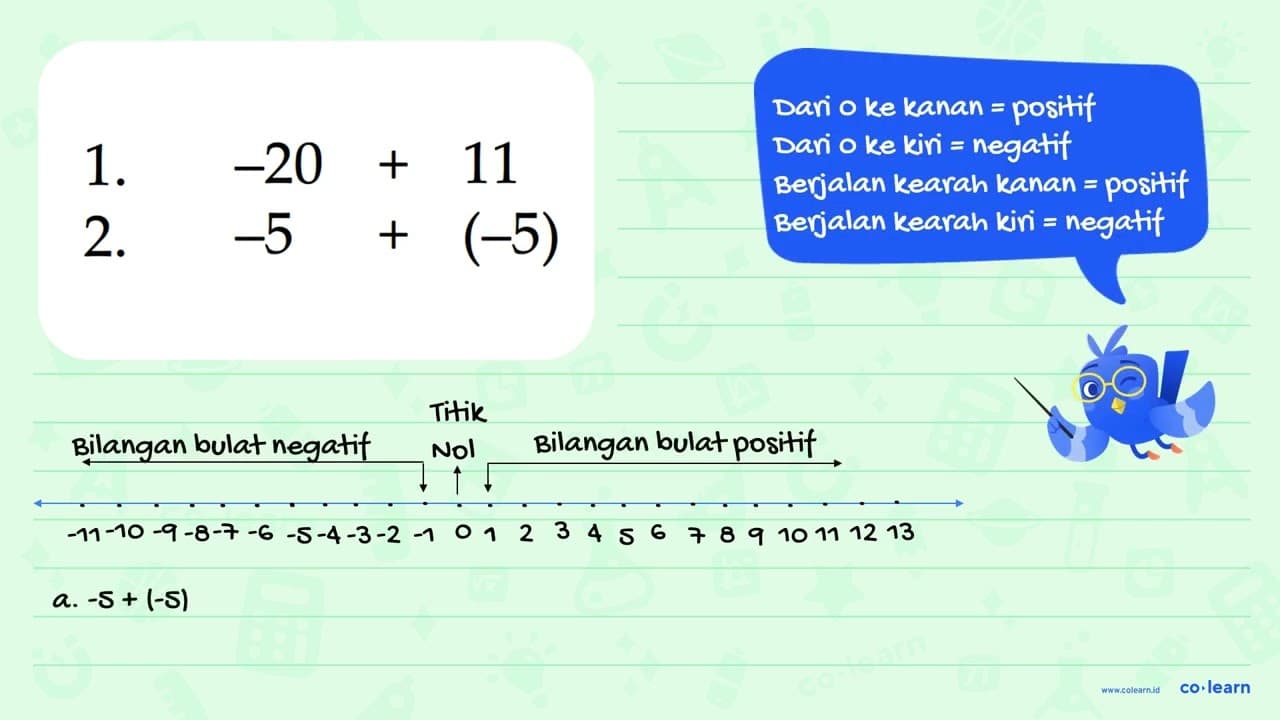 1. –20 + 11
2. –5 + (–5)
Dari 0 ke kanan = positif
Dari 0 ke kiri = negatif
Berjalan kearah kanan = positif
Berjalan kearah kiri = negatif
Titik
Nol
Bilangan bulat negatif
Bilangan bulat positif
-11 -10 -9 -8 -7 -6 -5 -4 -3 -2 -1 0 1 2 3 4 5 6 7 8 9 10 11 12 13
a. -5 + (-5)
co·learn
www.colearn.id co·learn